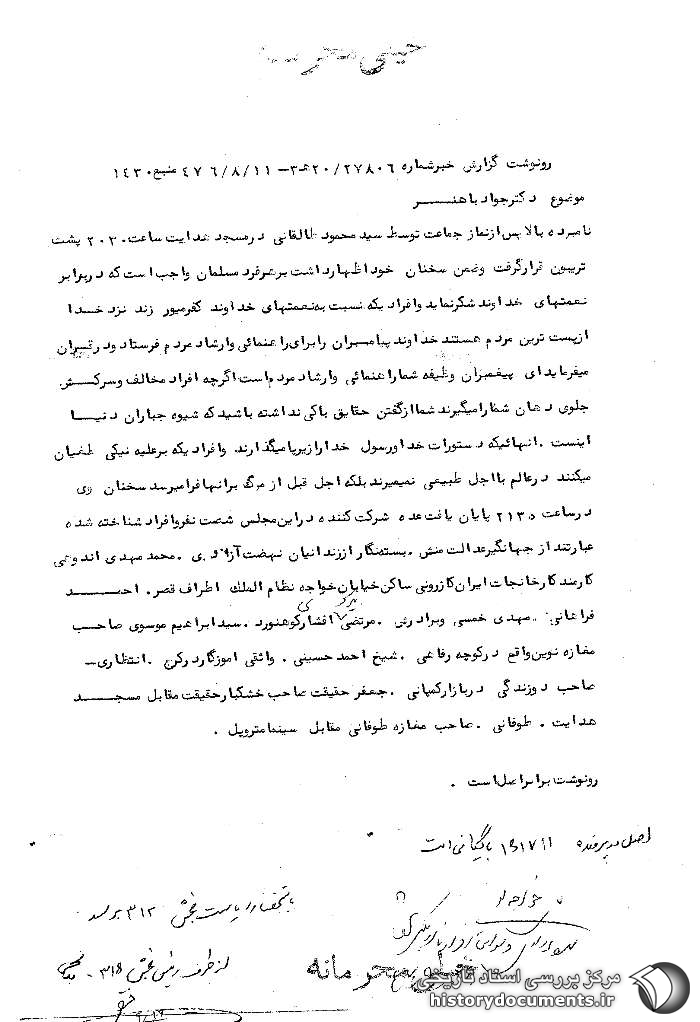 خیلی محرمانه
رونوشت گزارش خبرشماره ۲۷۸۰۶/ ۲۰ﻫ۳ – ۴۷/۸/۱۱ ۶ منبع ۱۴۳۰
موضوع دکترجواد باهنـــــر
نامبرده بالاپس ازنماز جماعت توسط سید محمود طالقانی درمسجد هدایت ساعت ۲۰۳۰ پشت
تریبون قرارگرفت وضمن سخنان خود اظهارداشت برهرفرد مسلمان واجب است که دربرابر
نعمتهای خداوند شکرنماید وافرادیکه نسبت به نعمتهای خداوند کفرمیورزند نزد خــدا
ازپست ترین مردم هستند خداوند پیامبــران رابرای راهنمائی وارشاد مردم فرستاد ودرقران
میفرماید ای پیغمبران وظیفه شماراهنمائی وارشاد مردم است اگرچه افراد مخالف وسرکــش
جلوی دهان شمارامیگیرند شماازگفتن حقایق باکی نداشته باشید که شیوه جباران دنیــا
اینست . انهائیکه دستورات خداورسول خدارازیرپامیگذارند وافرادیکه برعلیه نیکی طغیان
میکنند درعالم بااجل طبیعی نمیمیرند بلکه اجل قبل از مرگ برانهافرامیرسد سخنان وی
درساعت ۲۱۳۰ پایان یافت عده شرکت کننده دراین مجلس شصت نفروافراد شناخته شده
عبارتند از جهانگیرعدالت منش . بسته نگار اززندانیان نهضت آزادی . محمد مهدی اندوهی
کارمند کارخانجات ایران کازرونی ساکن خیابان خواجه نظام الملك اطراف قصر . احمــــد
فراهانی . مهدی خمسی وبرادرش . مرتضی افشار کوهنورد . سید ابراهیم موسوی صاحب
مغازه نوین واقع درکوچه رفاهی . شیخ احمد حسینی . واثقی اموزگاردرکرج . انتظاری –
صاحب دوزندگی دربازارکمپانی . جعفر حقیقت صاحب خشکبارحقیقت مقابل مسجــــد
هدایت . طوفانی . صاحب مغازه طوفانی مقابل سینمامتروپل .
رونوشت برابراصل است .
اصل در پرونده ۱۶۱۷۱۱ بایگانی است
باستحضار ریاست بخش ۳۱۲ برسد
از طرف رئیس بخش ۳۱۵ -
خیلی محرمانه
مرکز بررسی اسناد تاریخی
historydocuments.ir